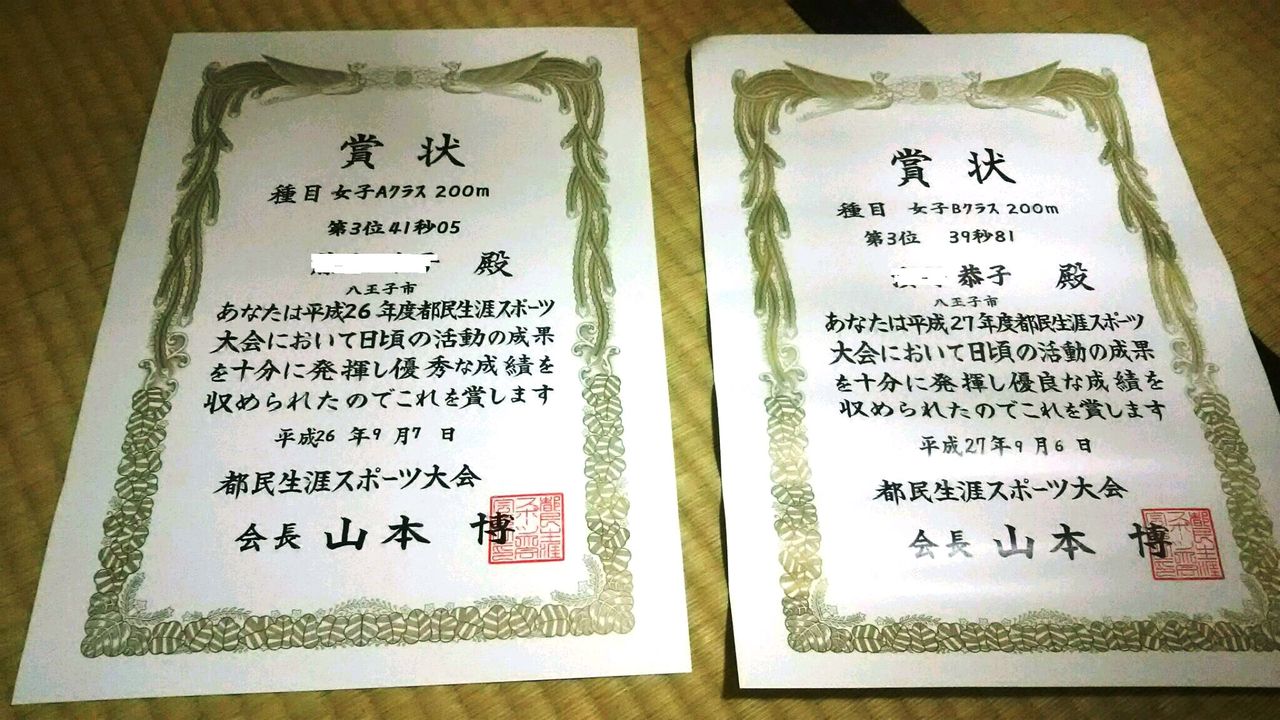 賞状
種目 女子Aクラス 200m
第3位 41秒05
殿
八王子市
あなたは平成26年度都民生涯スポーツ
大会において日頃の活動の成果
を十分に発揮し優秀な成績を
収められたのでこれを賞します
平成26年9月7日
都民生涯スポーツ大会
会長 山本 博
賞状
種目 女子Bクラス 200m
第3位 39秒81
恭子 殿
八王子市
あなたは平成27年度都民生涯スポーツ
大会において日頃の活動の成果
を十分に発揮し優良な成績を
収められたのでこれを賞します
平成27年9月6日
都民生涯スポーツ大会
会長 山本 博